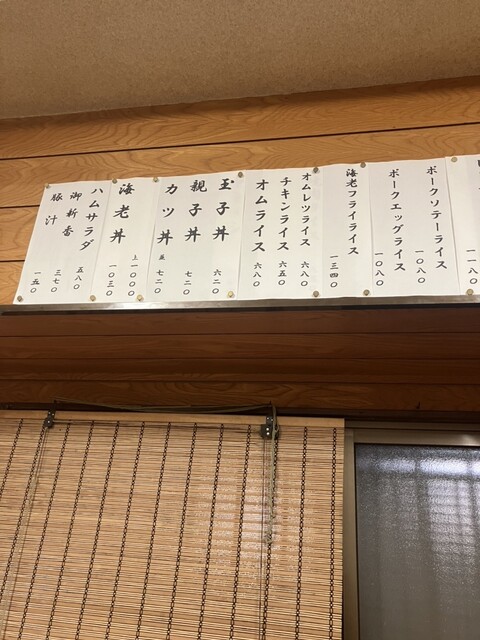 一一八〇
ポークソテーライス 一〇八〇
ポークエッグライス 一〇八〇
海老フライライス 一三四〇
オムレツライス 六八〇
チキンライス 六五〇
オムライス 六八〇
玉子丼 六二〇
親子丼 七二〇
カツ丼 並 七二〇
上一〇〇〇
海老丼 一〇三〇
ハムサラダ 五八〇
御新香 三七〇
豚汁 一五〇